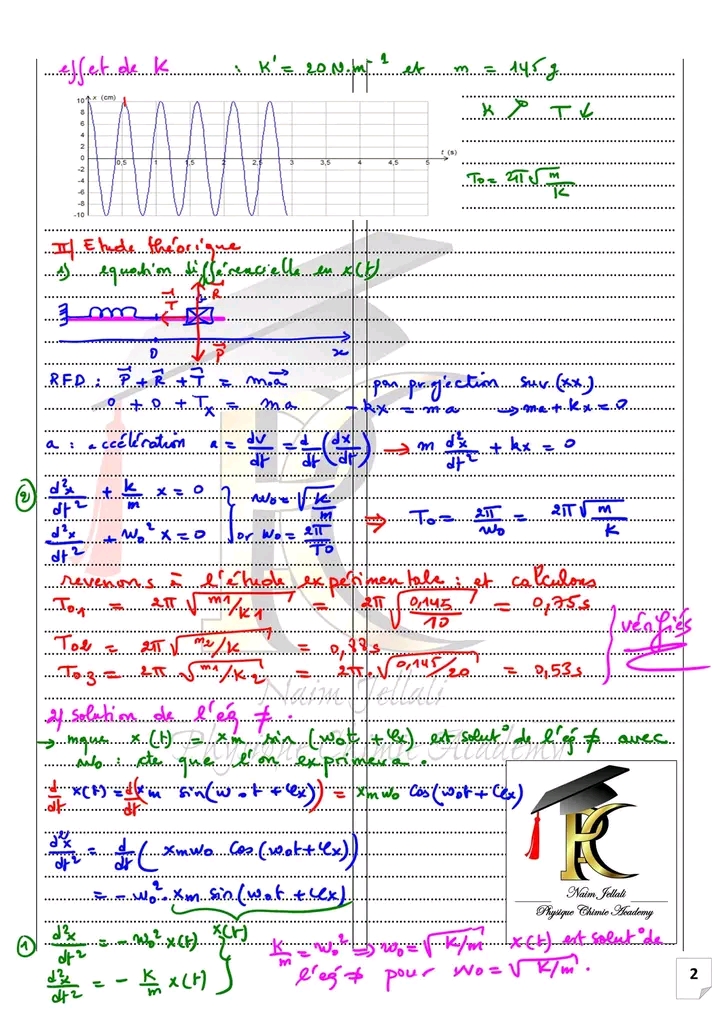 effet de K : K' = 20 N.m⁻¹ et m = 145 g
x (cm)
10
8
6
4
2
0
-2
-4
-6
-8
-10
0,5 1 1,5 2 2,5 3 3,5 4 4,5 5 t (s)
K ↗ T ↓
T₀ = 2π√(m/K)
II) Etude théorique
1) equation différencielle en x(t)
T R
O P x
RFD : P + R + T = m.a par projection sur (xx')
0 + 0 + Tx = ma -kx = ma → ma + kx = 0
a : accélération a = dv/dt = d/dt (dx/dt) → m d²x/dt² + kx = 0
② d²x/dt² + k/m x = 0 } w₀ = √(K/m)
d²x/dt² + w₀² x = 0 } or w₀ = 2π/T₀ ⇒ T₀ = 2π/w₀ = 2π√(m/K)
revenons à l'étude expérimentale : et calculons
T₀.₁ = 2π √(m₁/K₁) = 2π √(0,145/10) = 0,75s
T₀₂ = 2π√(m₂/K) = 0,88s
T₀.₃ = 2π √(m₁/K₂) = 2π.√(0,145/20) = 0,53s
vérifiés
2) solution de l'éq ≠.
→ mque x(t) = xm sin (w₀t + φx) est solut° de l'éq ≠ avec
w₀ : cte que l'on exprimera.
d/dt x(t) = d/dt (xm sin(w₀t + φx)) = xm w₀ cos(w₀t + φx)
d²x/dt² = d/dt ( xm w₀ cos(w₀t + φx))
= - w₀². xm sin(w₀t + φx)
x(t)
① d²x/dt² = - w₀² x(t)
d²x/dt² = - K/m x(t)
K/m = w₀² ⇒ w₀ = √(K/m) x(t) est solut° de
l'éq ≠ pour w₀ = √(K/m).
Naim Jellali
Physique Chimie Academy
Naim Jellali
Physique Chimie Academy
2